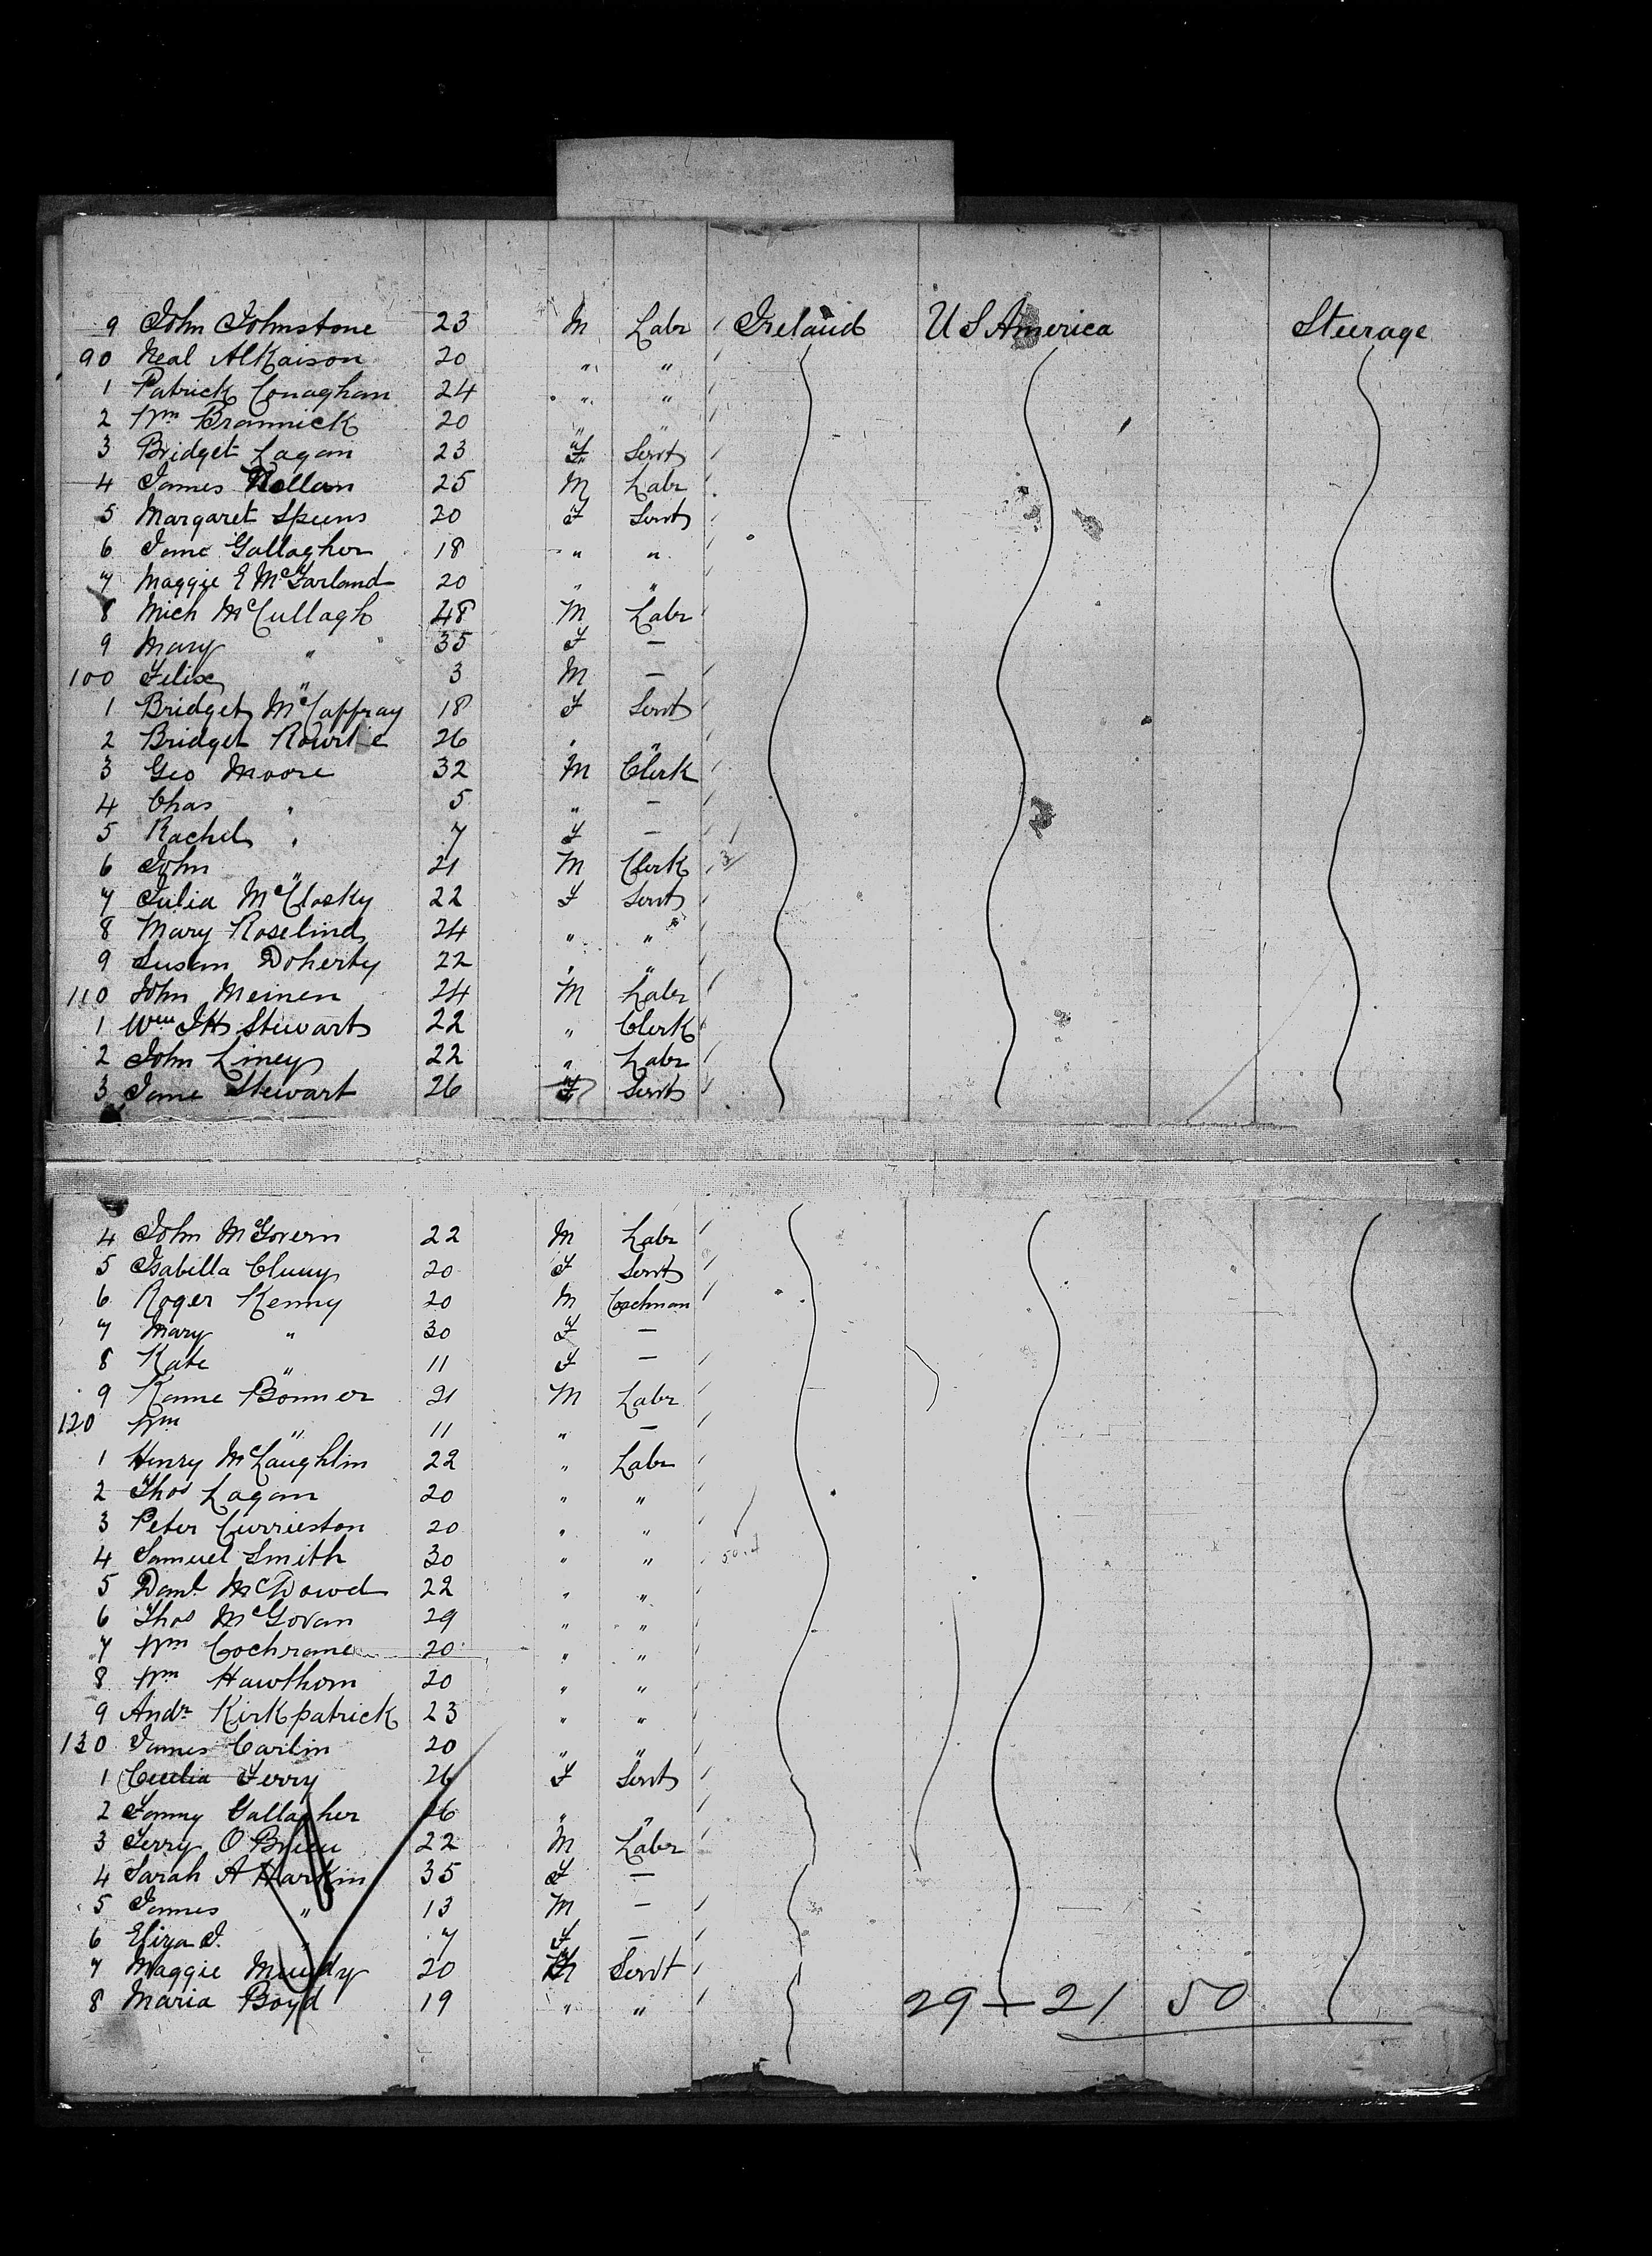 9 John Johnstone 23 M Labr Ireland U S America Steerage
90 Neal Alkaison 20 " "
1 Patrick Conaghan 24 " "
2 Wm Brannick 20 " "
3 Bridget Lagan 23 F Servt
4 James 25 M Labr
5 Margaret Speens 20 F Servt
6 Jane Gallagher 18 " "
7 Maggie E McFarland 20 " "
8 Mich McCullagh 48 M Labr
9 Mary " 35 F —
100 Felix " 3 M —
1 Bridget McCaffray 18 F Servt
2 Bridget 26 " "
3 Geo Moore 32 M Clerk
4 Chas " 5 " —
5 Rachel " 7 F —
6 John " 21 M Clerk
7 Julia McClosky 22 F Servt
8 Mary Roselind 24 " "
9 Susan Doherty 22 " "
110 John Meinen 24 M Labr
1 Wm J H Stewart 22 " Clerk
2 John Liney 22 " Labr
3 Jane Stewart 26 F Servt
4 John McGovern 22 M Labr
5 Isabella Cluny 20 F Servt
6 Roger Kenny 20 M Coachman
7 Mary " 30 F —
8 Kate " 11 F —
9 Bonner 21 M Labr
120 Wm " 11 " —
1 Henry McLaughlin 22 " Labr
2 Thos Lagan 20 " "
3 Peter Currieston 20 " "
4 Samuel Smith 30 " "
5 Danl McDowd 22 " "
6 Thos McGovan 29 " "
7 Wm Cochrane 20 " "
8 Wm Hawthorn 20 " "
9 Andw Kirkpatrick 23 " "
130 James Carlin 20 " "
1 Cecelia Ferry 26 F Servt
2 Fanny Gallagher 26 " "
3 Terry O'Brien 22 M Labr
4 Sarah A Harkin 35 F —
5 James " 13 M —
6 Eliza J. " 7 F —
7 Maggie 20 F Servt
8 Maria Boyd 19 " " 29 – 21 50